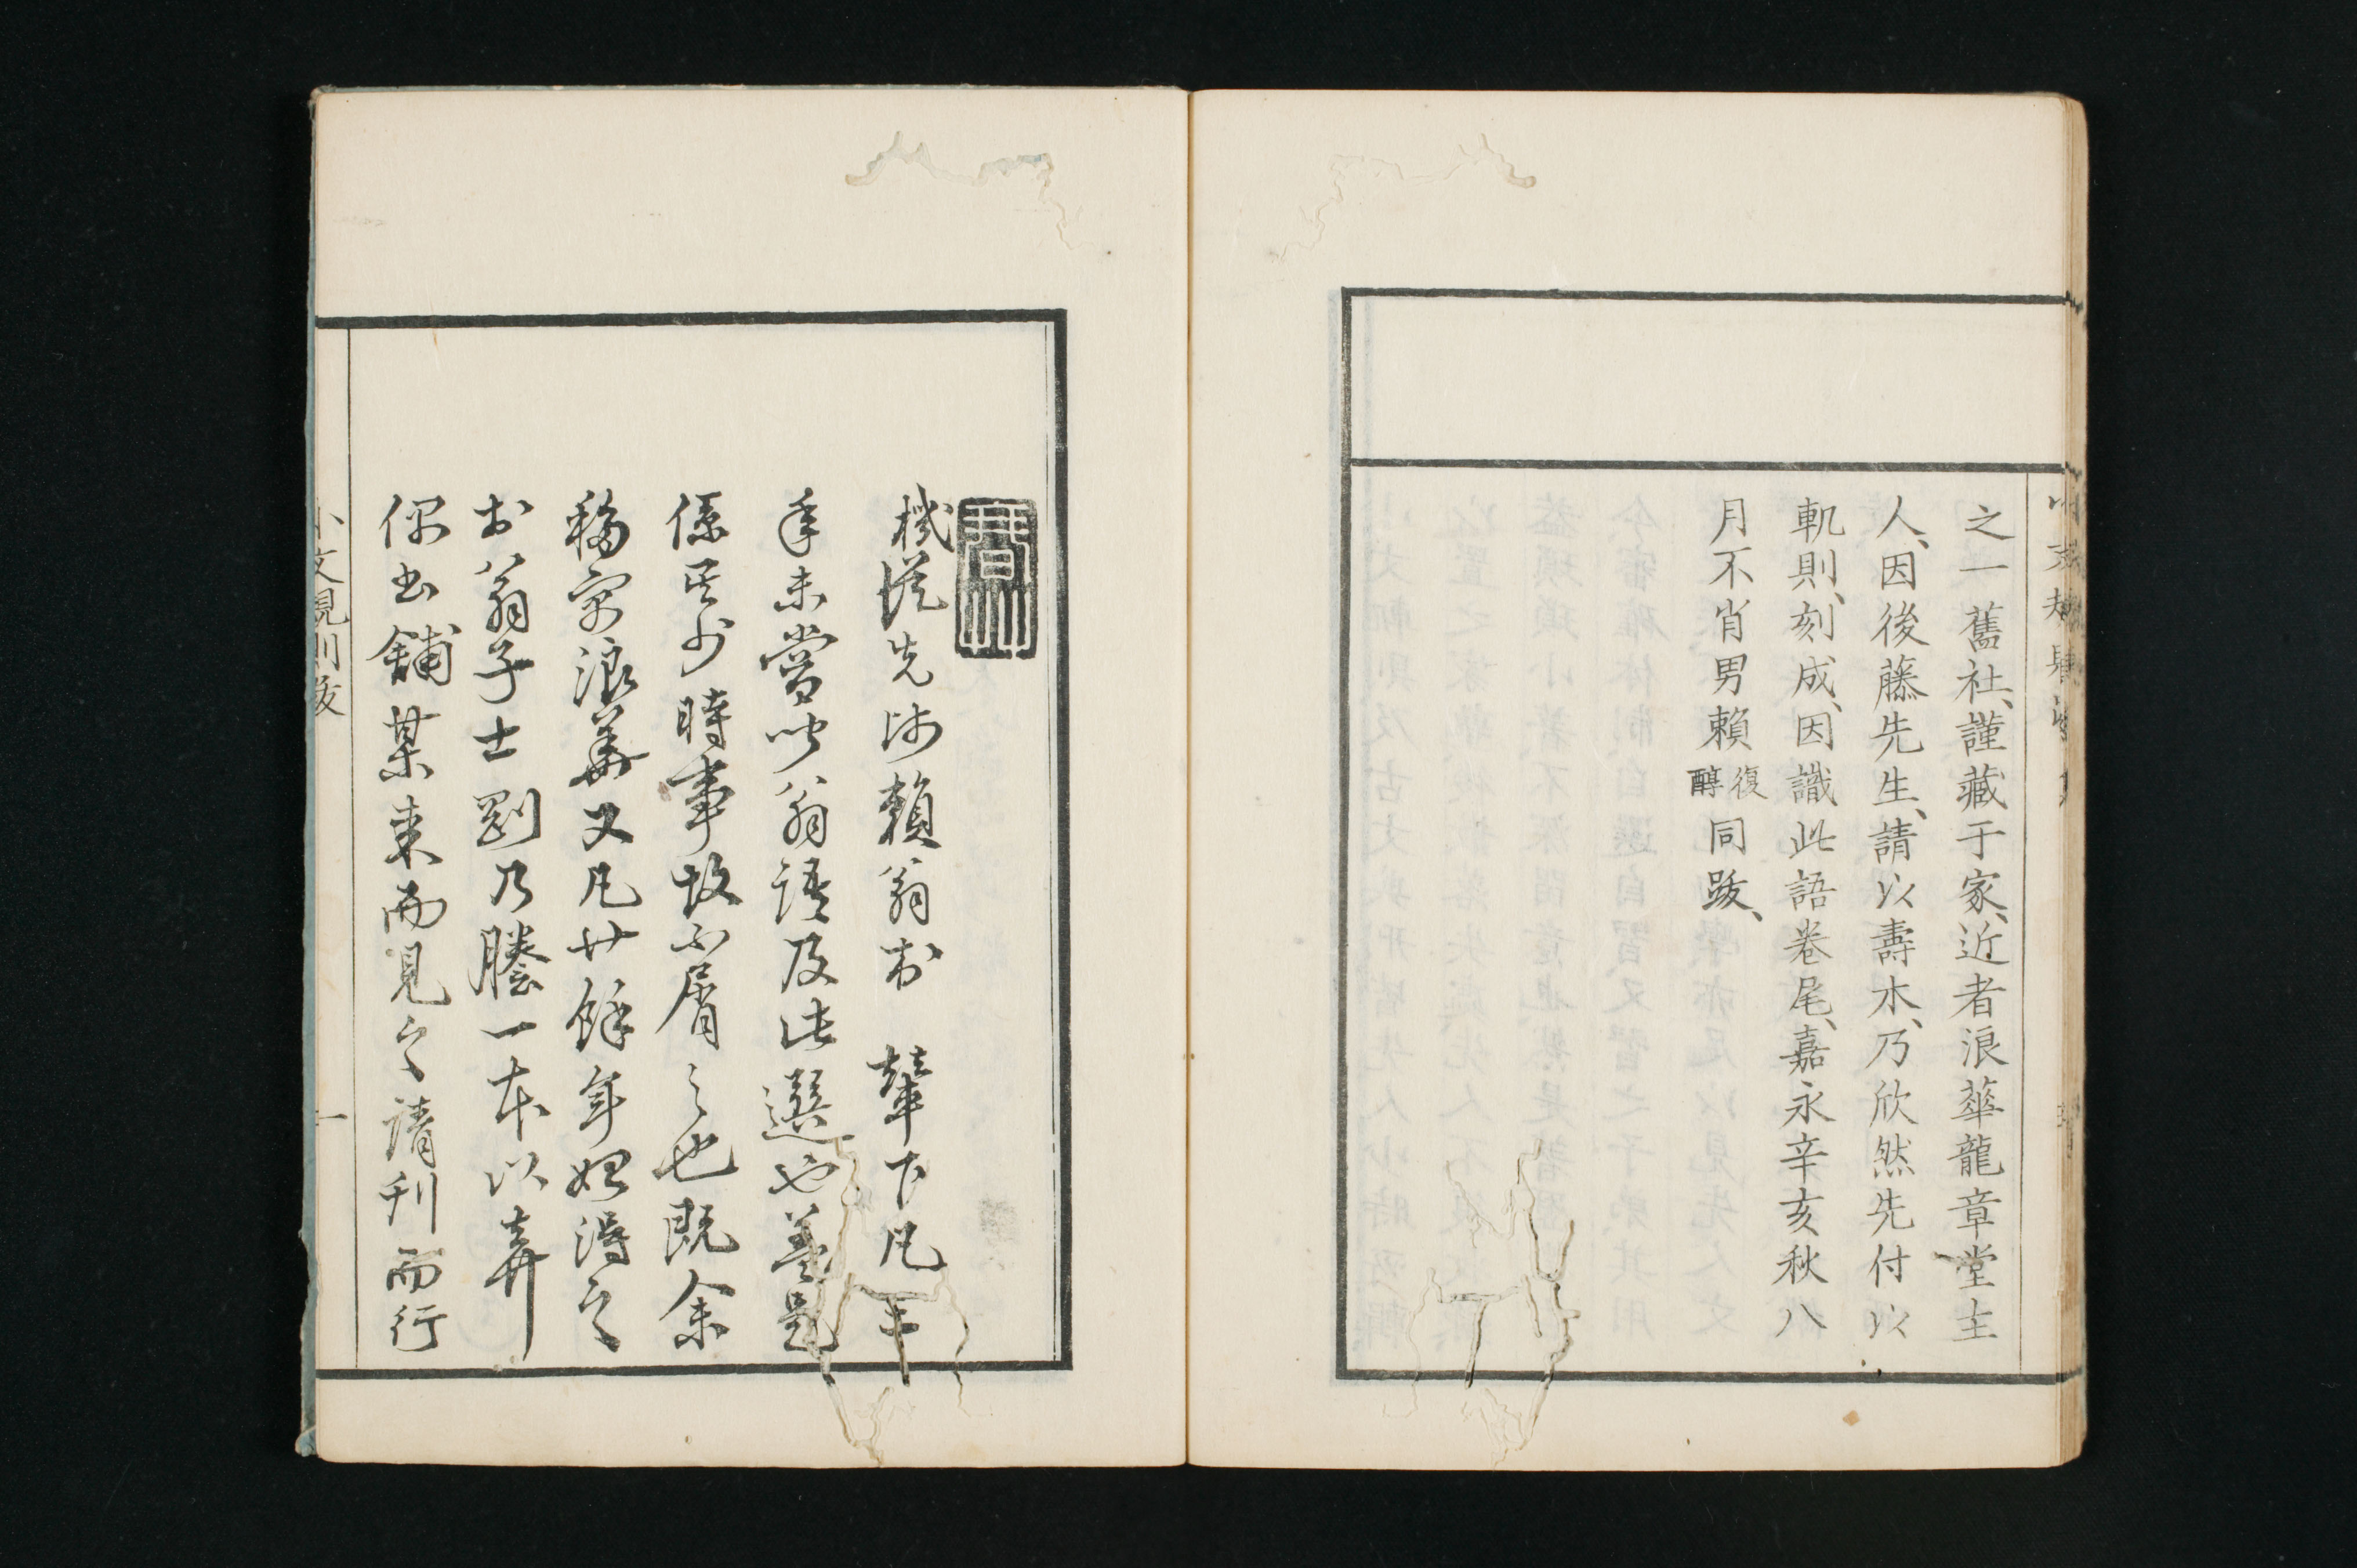 之一舊社、謹藏于家、近者浪華龍章堂主
人、因後藤先生、請以壽木、乃欣然先付以
軌則、刻成、因識此語卷尾、嘉永辛亥秋八
月不肖男賴復醇同跋、
機從先師賴翁於 輦下凡十
年未嘗聞翁語及此選也蓋是
係其少時事故不屑之也既余
移家浪華又凡廿餘年始得之
於翁子士剛乃謄一本以弆
偶書鋪某來而見之請刊而行
小文規則跋 一